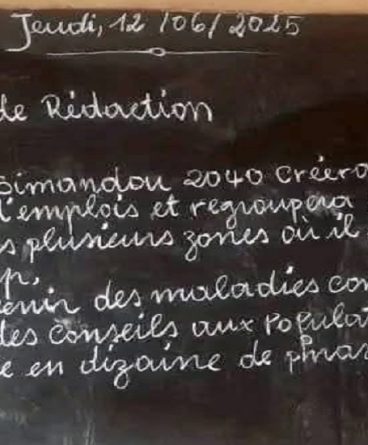 Jeudi, 12/06/2025
de Rédaction
Simandou 2040 créera
d'emplois et regroupera
s plusieurs zones où il
p,
enir des maladies con
des conseils aux Populat
e en dizaine de phras